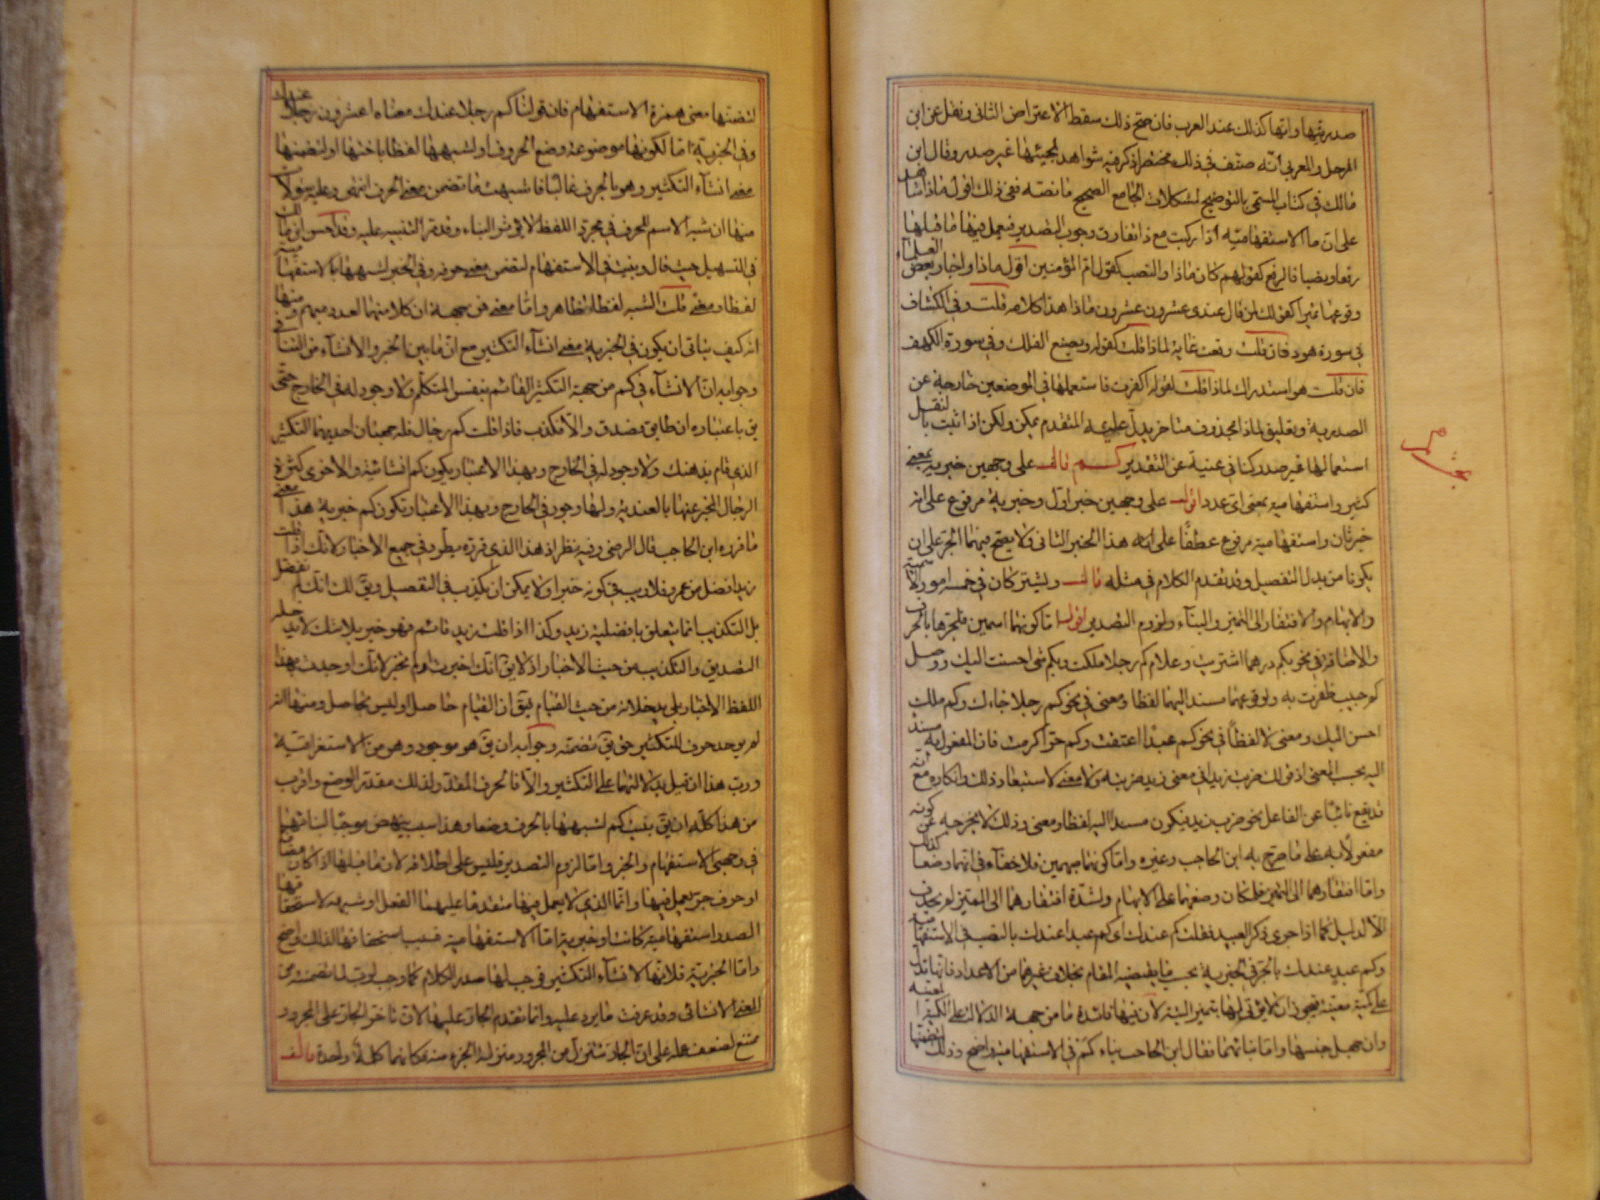 صدريتها وانها كذلك عند العرب فان صح ذلك سقط الاعتراض الثاني ونقل عن ابن
المرحل والمعري انه صنف في ذلك مختصرا ذكر فيه شواهد لمجيئها غير صدر وقال ابن
مالك في كتاب المسمى بالتوضيح لمشكلات الجامع الصحيح ما نصه ففي ذلك اقول ماذا شاهد
على ان ما الاستفهامية اذا ركبت مع ذا تفارق وجوب التصدير فيعمل فيها ما قبلها
رفعا ونصبا فالرفع كقولهم كان ماذا والنصب كقول ام المؤمنين اقول ماذا واجاز بعض العلماء
وقوعها تميزا كقولك لمن قال عندي عشرون عشرون ماذا هذا كلامه قلت وفي الكشاف
في سورة هود فان قلت وقعت غاية لماذا قلت كقوله ويصنع الفلك وفي سورة الكهف
فان قلت هو استدراك لماذا قلت لقوله اكفرت فاستعملها في الموضعين خارجة عن
الصدرية وتعليق لماذا بمحذوف متاخر يدل عليه المتقدم ممكن ولكن اذا ثبت بالنقل
استعمالها غير صدر كنا في غنية عن التقدير كم قال على وجهين خبرية بمعنى
كثير واستفهامية بمعنى اي عدد اقول على وجهين خبر اول وخبرية مرفوع على انه
خبر ثان واستفهامية مرفوع عطفا على هذا الخبر الثاني ولا يصح فيهما الجر على ان
يكونا من بدل التفصيل وقد تقدم الكلام في مثله قال ويشتركان في خمسة امور الاسمية
والابهام والافتقار الى التميز والبناء ولزوم التصدير اقول اما كونهما اسمين فلجرها بالحرف
والاضافة في نحو بكم درهما اشتريت وغلام كم رجلا ملكت وبكم شئ احسنت اليك ووصل
كم حبيب ظفرت به ولوقوعهما مسندا اليهما لفظا ومعنى في نحو كم رجلا جاءك وكم ملك
احسن اليك ومعنى لا لفظا في نحو كم عبدا اعتقت وكم حرا كرمت فان المفعول به مسند
اليه بحسب المعنى اذ قولك ضرب زيدا في معنى زيد ضربته ولا معنى لاستبعاد ذلك وانكاره مع انه
قد يقع نائبا عن الفاعل نحو ضرب زيد فيكون مسندا اليه لفظا ومعنى وذلك لا يخرجه عن كونه
مفعولا به على ما صرح به ابن الحاجب وغيره واما كونهما مبهمين فلا خفاء في انهما وضعا كذلك
واما افتقارهما الى التميز فلمكان وضعهما على الابهام ولشدة افتقارهما الى المميز لم يحذف
الا لدليل كما اذا جرى ذكر العبيد فقلت كم عندك اي كم عبدا عندك بالنصب في الاستفهامية
وكم عبد عندك بالجر في الخبرية بحسب ما يقتضيه المقام بخلاف غيرهما من الاعداد فانها تدل
على كمية معينة فيجوز ان لا يؤتى لها بتميز البتة لان فيها فائدة ما من جهة الدلالة على الكمية المعينة
وان جهل جنسها واما بناؤهما فقال ابن الحاجب بناء كم في الاستفهامية واضح وذلك لتضمنها
لتضمنها معنى همزة الاستفهام فان قولنا كم رجلا عندك معناه اعشرون رجلا عندك
وفي الخبرية اما لكونها موضوعة وضع الحروف او لشبهها لفظا باختها او لتضمنها
معنى انشاء التكثير وهو بالحرف غالبا فاشبهت ما تضمن معنى الحرف انتهى وعليه سؤالات
منها ان شبه الاسم للحرف في مجرد اللفظ لا يؤثر البناء وقد مر التنبيه عليه وقد احسن ابن مالك
في التسهيل حيث قال وبنيت في الاستفهام لتضمن معنى حرفه وفي الخبر لشبهها بالاستفهامية
لفظا ومعنى قلت الشبه لفظا ظاهر واما معنى فمن جهة ان كلا منهما لعدد مبهم ومنها
انه كيف يتاتى ان يكون في الخبرية معنى انشاء التكثير مع ان ما بين الخبر والانشاء من التنافي
وجوابه ان الانشاء في كم من جهة التكثير القائم بنفس المتكلم ولا وجود له في الخارج حتى
يق باعتباره ان طابق فصدق والا فكذب فاذا قلت كم رجال فله جهتان احديهما التكثير
الذي قام بذهنك ولا وجود له في الخارج وبهذا الاعتبار يكون كم انشائية والاخرى كثرة
الرجال المخبر عنها بالعندية ولها وجود في الخارج وبهذا الاعتبار تكون كم خبرية هذا معنى
ما قرره ابن الحاجب قال الرضي وفيه نظر اذ هذا الذي قرره يطرد في جميع الاخبار لانك اذا قلت
زيد افضل من عمرو فلا ريب في كونه خبرا ولا يمكن ان يكذب في التفضيل ويق لك انك لم تفضل
بل التكذيب انما يتعلق بافضلية زيد وكذا اذا قلت زيد قائم فهو خبر بلا شك لا يدخله
التصديق والتكذيب من حيث الاخبار اذ لا يق انك اخبرت اولم تخبر لانك اوجدت بهذا
اللفظ الاخبار بل يدخلانه من حيث القيام فيق ان القيام حاصل او ليس بحاصل ومنها انه
لم يوجد حرف للتكثير حتى يق تضمنته وجوابه ان يق هو موجود وهو من الاستغراقية
ورب هذا ان قيل بدلالتهما على التكثير والا فالحرف المقدر ولذلك مقدر الوضع واقرب
من هذا كله ان يق بنيت كم لشبهها بالحرف وضعا وهذا سبب ينهض موجبا لبنائها
في وجهي الاستفهام والخبر واما لزوم التصدير فليس على اطلاقه لان ما قبلها اذا كان مضافا
او حرف جر يعمل فيها وانما الذي لا يعمل فيها متقدما عليها الفعل او شبهه لاستحقاقها
الصدر استفهامية كانت او خبرية اما الاستفهامية فسبب استحقاقها لذلك واضح
واما الخبرية فلانها لانشاء التكثير فوجب لها صدر الكلام كما وجب لرب لما تضمنته من
المعنى الانشائي وقد عرفت ما يرد عليه وانما تقدم الجار عليها لان تاخر الجار على المجرور
ممتنع لضعف عمله على ان الجار تنزل من المجرور منزلة الجزء منه فكانهما كلمة واحدة قال